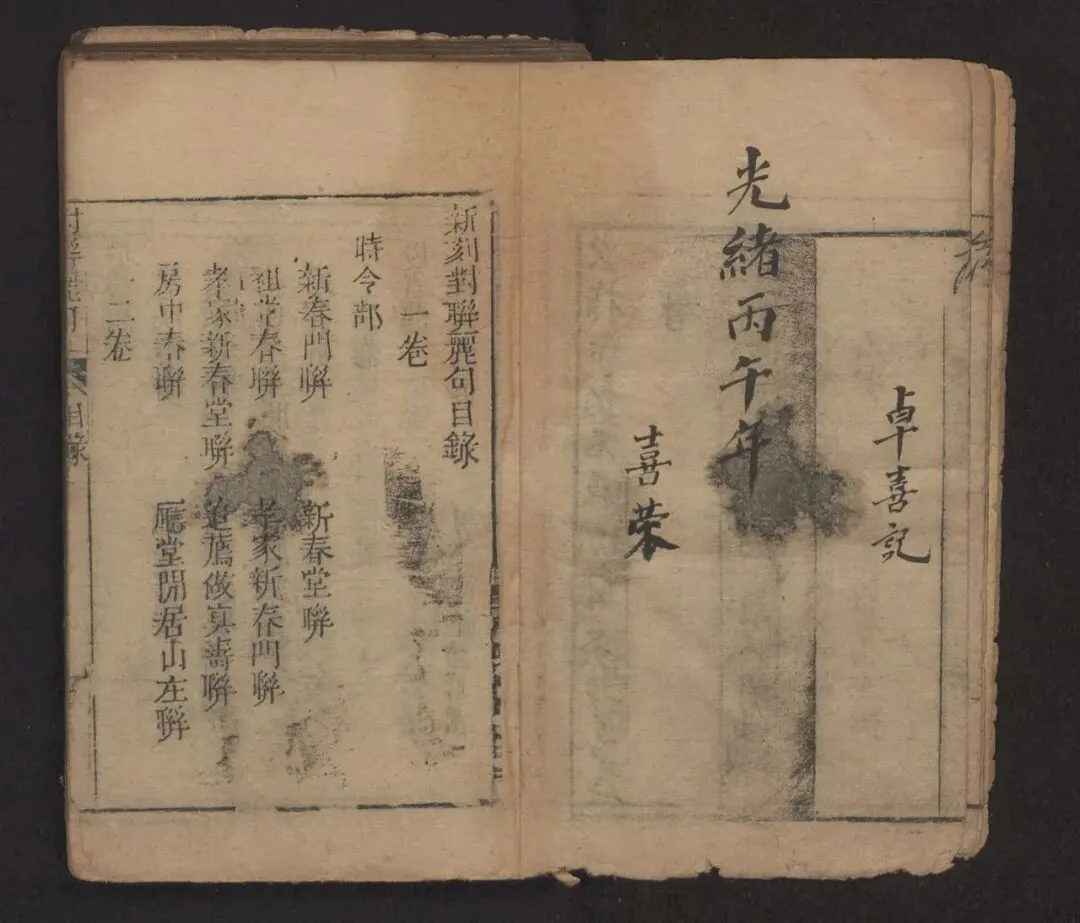 卓喜記
光緒丙午年
喜荣
新刻對聯麗句目錄
一卷
時令部
新春門聯 新春堂聯
祖堂春聯 孝家新春門聯
孝家新春堂聯 追薦做寘壽聯
房中春聯 廳堂閒居山左聯
二卷
目錄